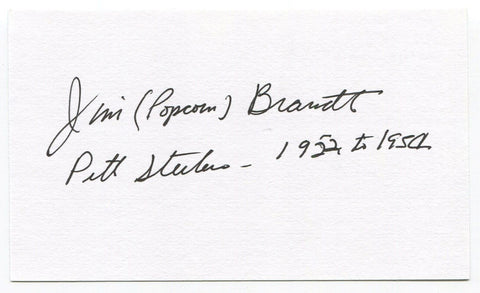 Jim (Popcorn) Brandt
Pitt Steelers - 1952 to 1954